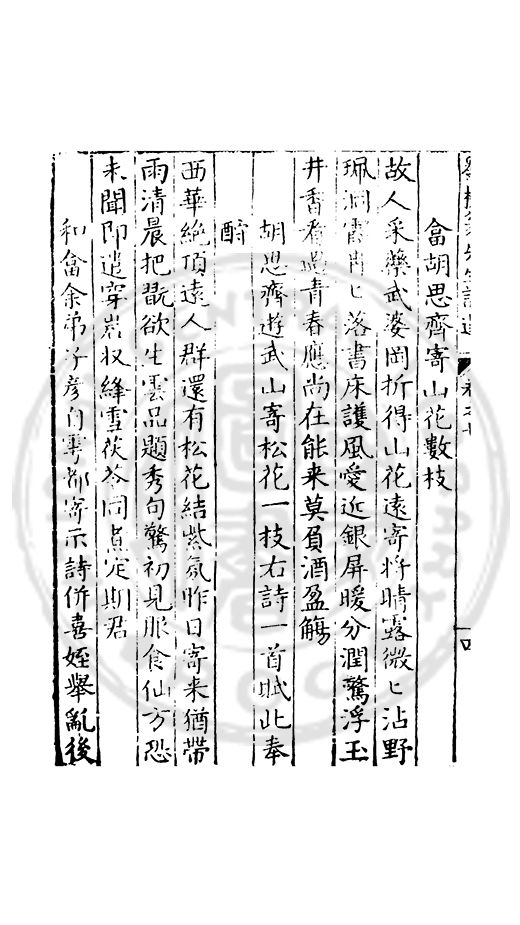 畣胡思齊寄山花數枝
故人采藥武婆岡折得山花遠寄將晴露微〻沾野
珮洞雲冉〻落書床護風愛近銀屏暖分潤驚浮玉
井香看學青春應尚在能来莫負酒盈觴
胡思齊遊武山寄松花一枝右詩一首賦此奉
酧
西華絶頂遠人群還有松花結紫氛昨日寄来猶帶
雨清晨把翫欲生雲品題秀句驚初見服食仙方恐
未聞即遣穿岩収絳雪茯苓同煑定期君
和畣余弟子彦自雩都寄示詩併喜姪舉亂後